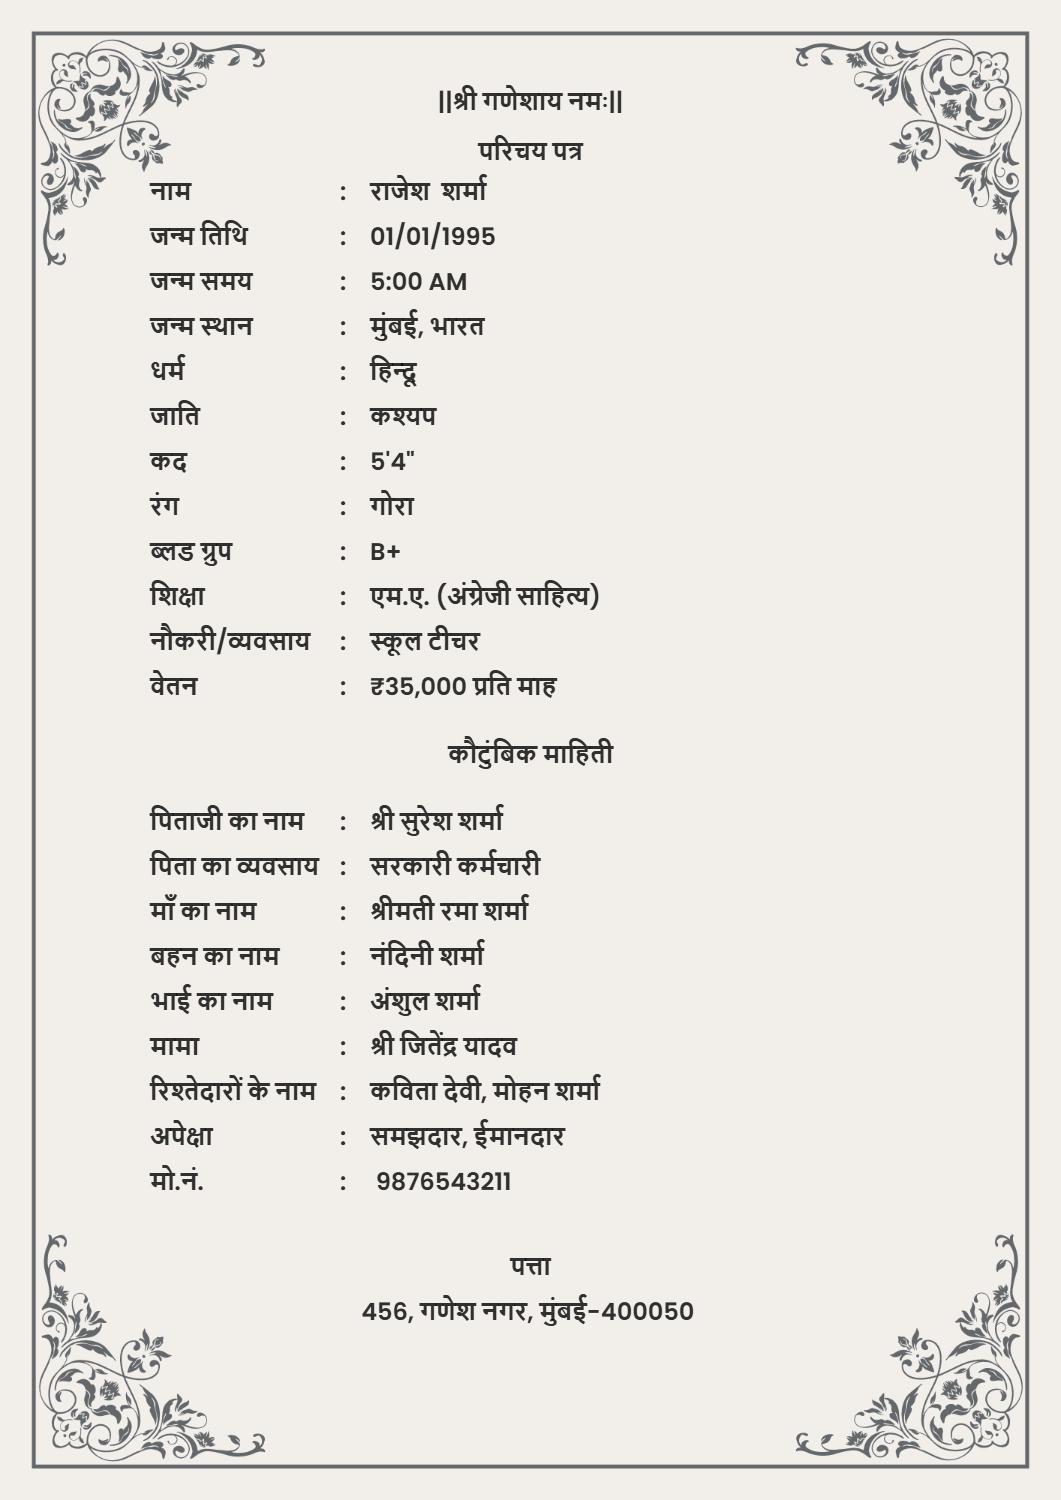 ||श्री गणेशाय नमः||
परिचय पत्र
नाम : राजेश शर्मा
जन्म तिथि : 01/01/1995
जन्म समय : 5:00 AM
जन्म स्थान : मुंबई, भारत
धर्म : हिन्दू
जाति : कश्यप
कद : 5'4"
रंग : गोरा
ब्लड ग्रुप : B+
शिक्षा : एम.ए. (अंग्रेजी साहित्य)
नौकरी/व्यवसाय : स्कूल टीचर
वेतन : ₹35,000 प्रति माह
कौटुंबिक माहिती
पिताजी का नाम : श्री सुरेश शर्मा
पिता का व्यवसाय : सरकारी कर्मचारी
माँ का नाम : श्रीमती रमा शर्मा
बहन का नाम : नंदिनी शर्मा
भाई का नाम : अंशुल शर्मा
मामा : श्री जितेंद्र यादव
रिश्तेदारों के नाम : कविता देवी, मोहन शर्मा
अपेक्षा : समझदार, ईमानदार
मो.नं. : 9876543211
पत्ता
456, गणेश नगर, मुंबई-400050